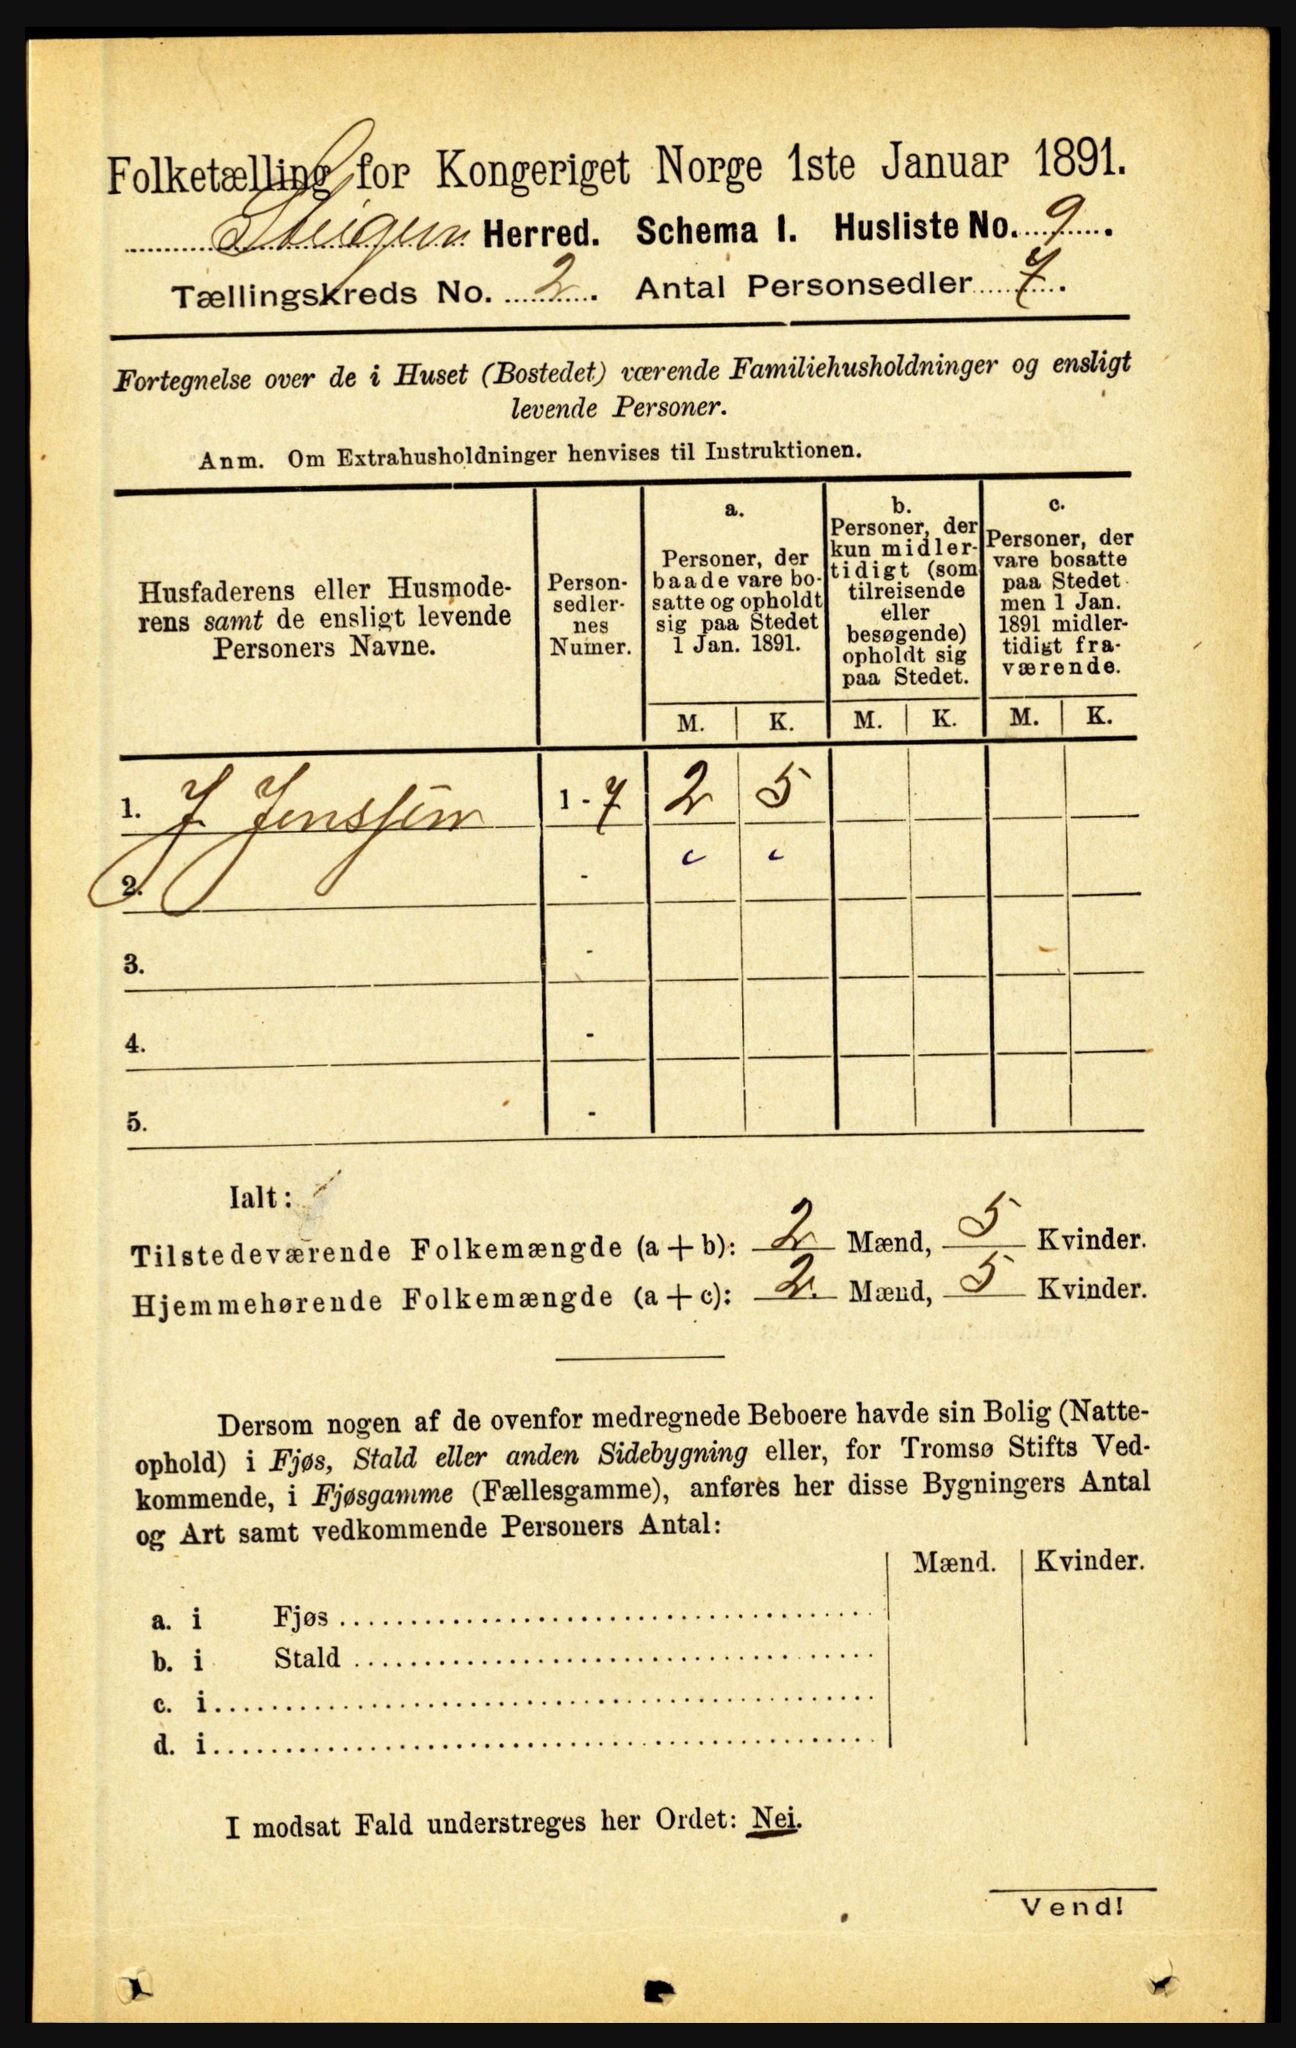 Folketælling for Kongeriget Norge 1ste Januar 1891.
Steigen Herred. Schema I. Husliste No. 9.
Tællingskreds No. 2. Antal Personsedler 7.
Fortegnelse over de i Huset (Bostedet) værende Familiehusholdninger og ensligt
levende Personer.
Anm. Om Extrahusholdninger henvises til Instruktionen.
Husfaderens eller Husmode-
rens samt de ensligt levende
Personers Navne.
Person-
sedler-
nes
Numer.
a.
Personer, der
baade vare bo-
satte og opholdt
sig paa Stedet
1 Jan. 1891.
b.
Personer, der
kun midler-
tidigt (som
tilreisende
eller
besøgende)
opholdt sig
paa Stedet.
c.
Personer, der
vare bosatte
paa Stedet
men 1 Jan.
1891 midler-
tidigt fra-
værende.
M. K. M. K. M. K.
1. J Jenssen 1-7 2 5
2. -
3. -
4. -
5. -
Ialt:
Tilstedeværende Folkemængde (a + b): 2 Mænd, 5 Kvinder.
Hjemmehørende Folkemængde (a + c): 2 Mænd, 5 Kvinder.
Dersom nogen af de ovenfor medregnede Beboere havde sin Bolig (Natte-
ophold) i Fjøs, Stald eller anden Sidebygning eller, for Tromsø Stifts Ved-
kommende, i Fjøsgamme (Fællesgamme), anføres her disse Bygningers Antal
og Art samt vedkommende Personers Antal:
Mænd. Kvinder.
a. i Fjøs
b. i Stald
c. i
d. i
I modsat Fald understreges her Ordet: Nei.
Vend!